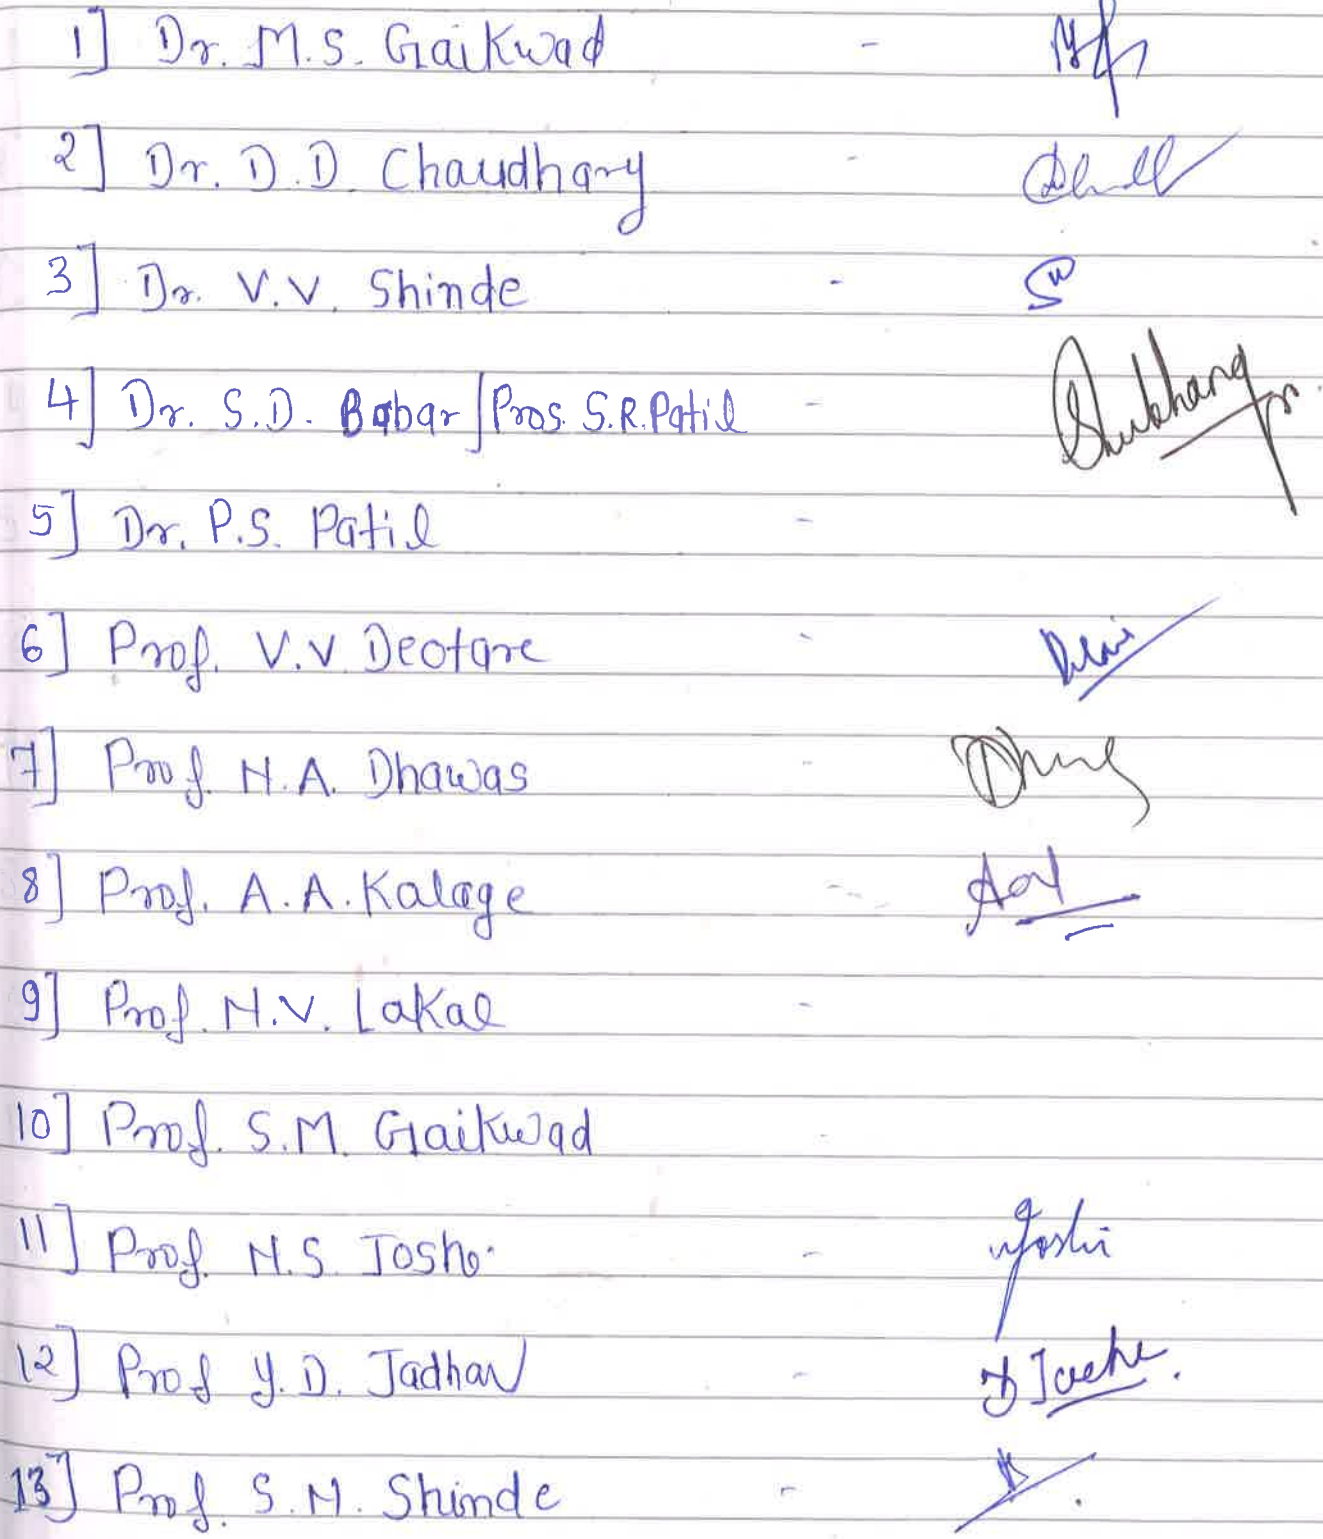 1] Dr. M.S. Gaikwad -
2] Dr. D.D. Chaudhary -
3] Dr. V.V. Shinde -
4] Dr. S.D. Babar / Pros. S.R. Patil -
5] Dr. P.S. Patil -
6] Prof. V.V. Deotare -
7] Prof. N.A. Dhawas -
8] Prof. A.A. Kalage -
9] Prof. N.V. Lakal -
10] Prof. S.M. Gaikwad -
11] Prof. N.S. Joshi - Joshi
12] Prof Y.D. Jadhav -
13] Prof. S.N. Shinde -